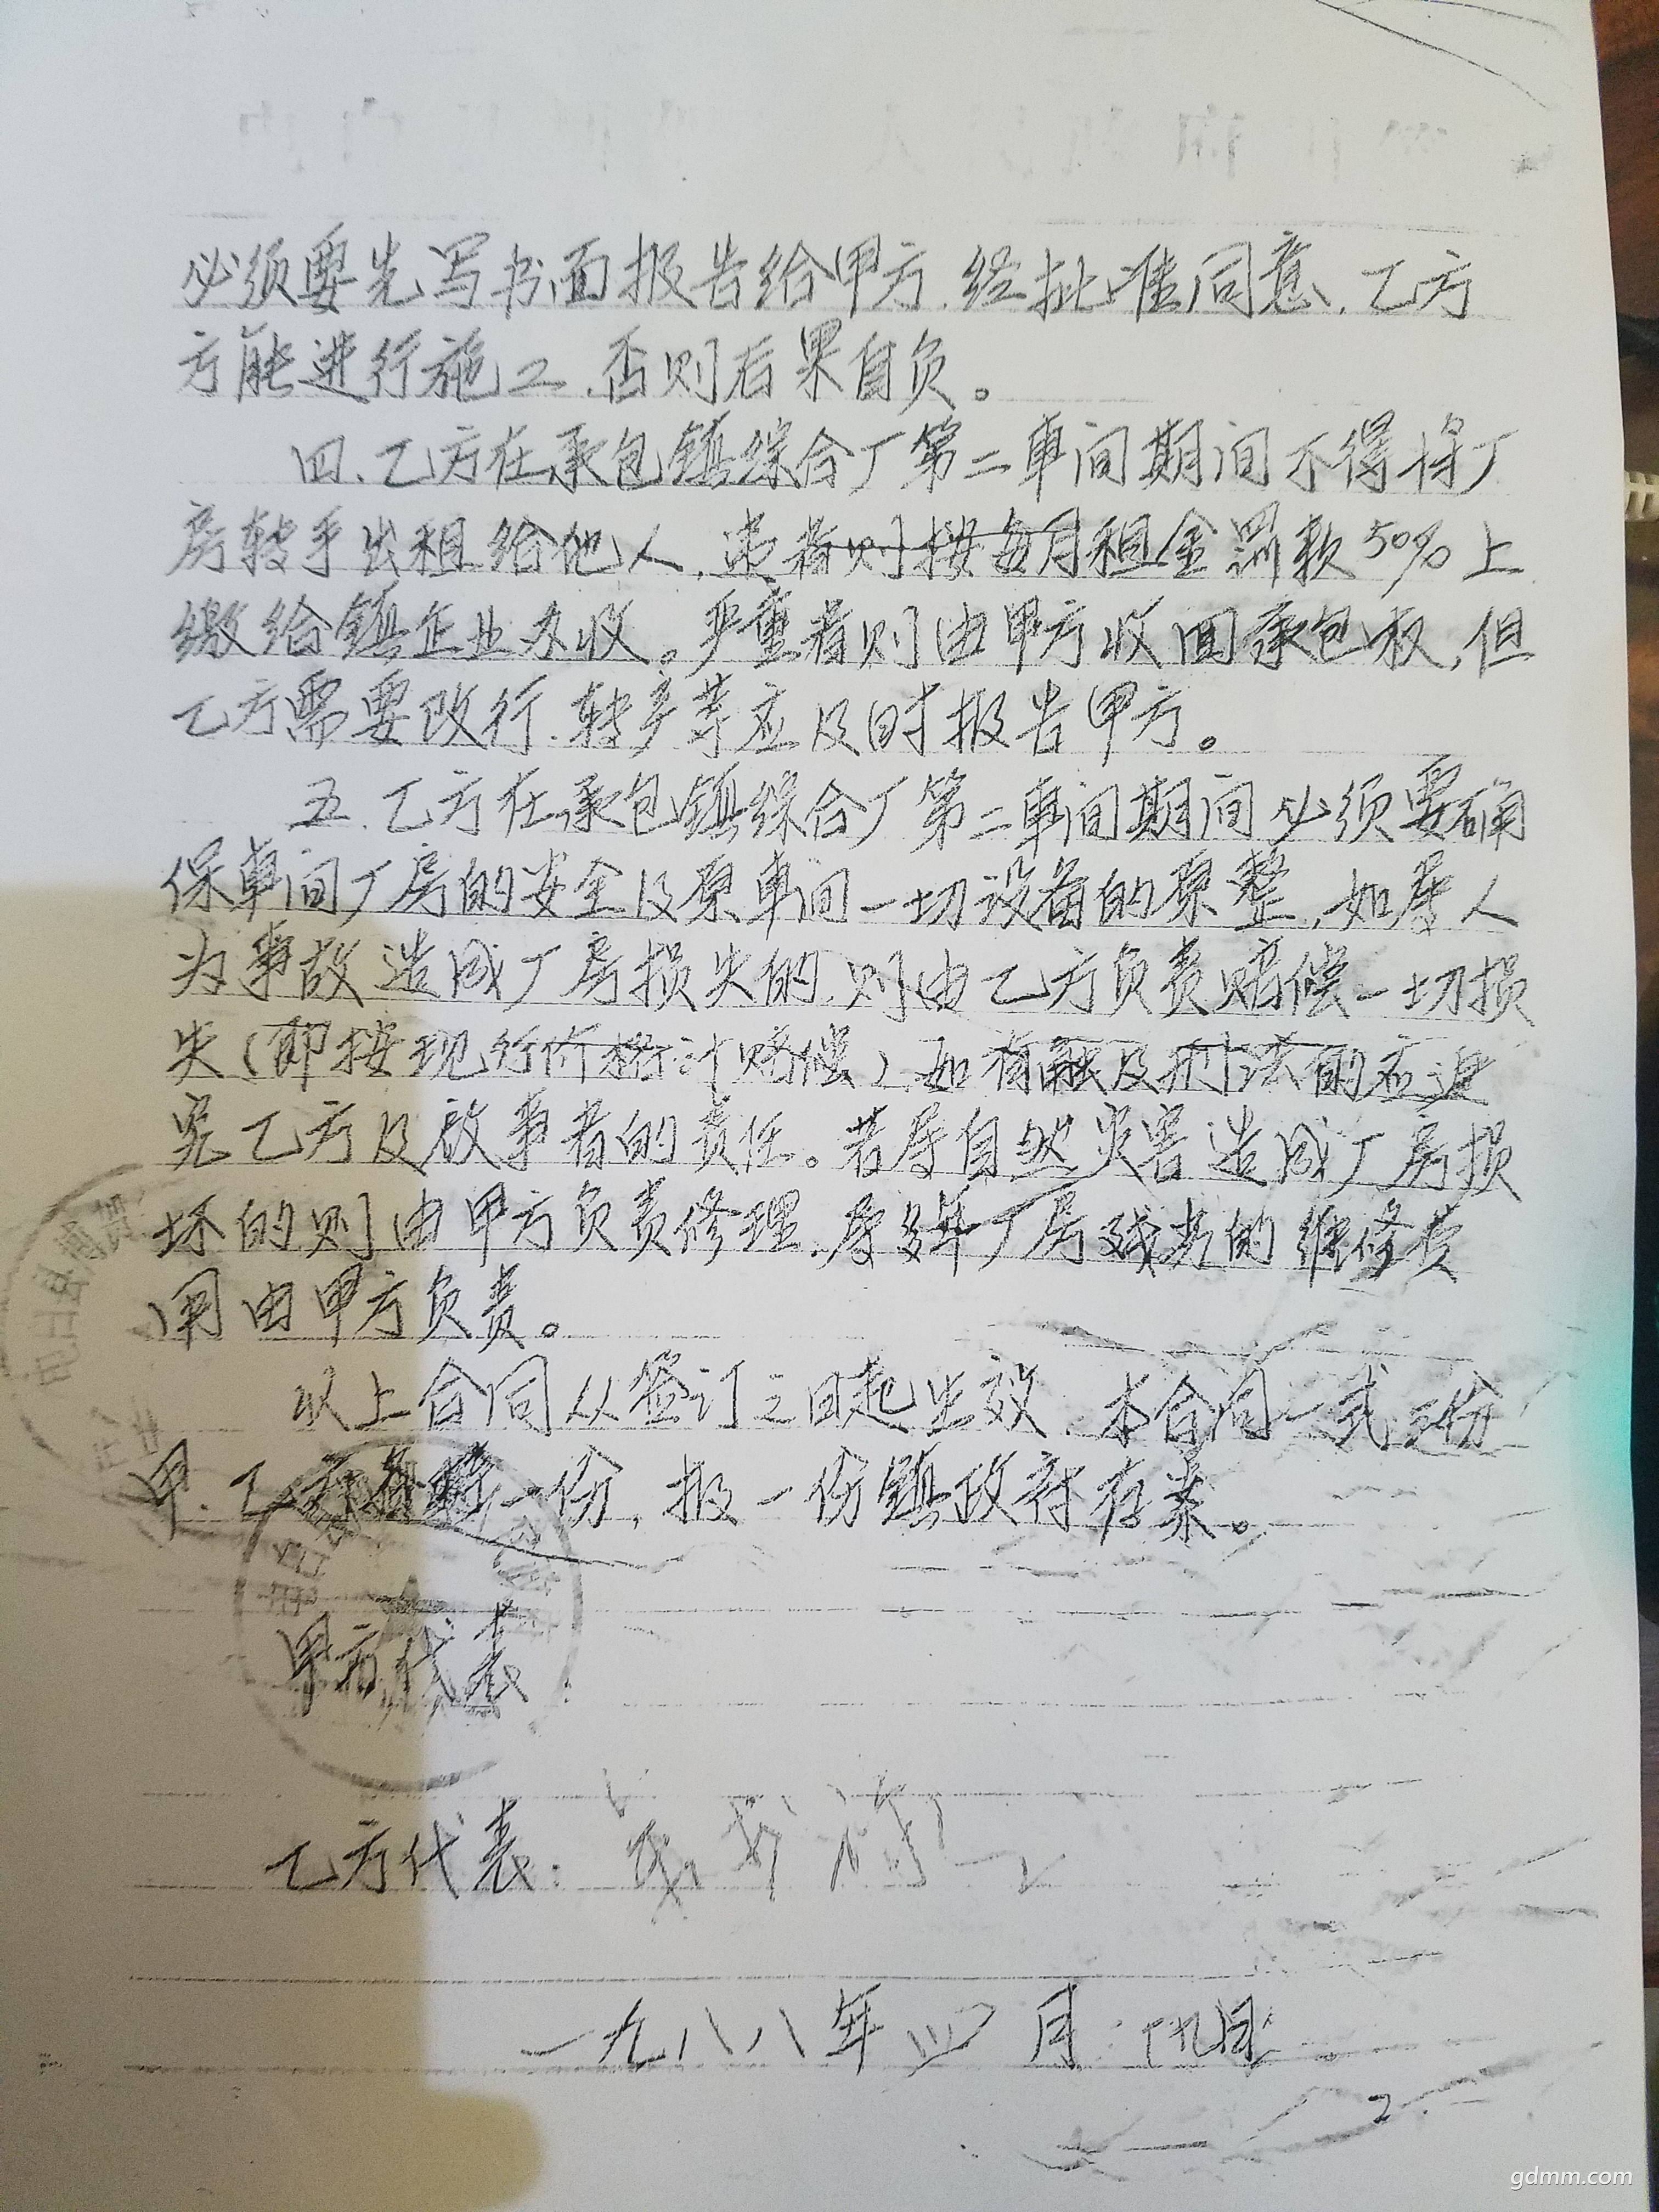 必须要先写书面报告给甲方.经批准同意.乙方
方能进行施工.否则后果自负。
四.乙方在承包镇综合厂第二车间期间不得将厂
房转手出租给他人.违者则按每月租金罚款50%上
缴给镇企业办收。严重者则由甲方收回承包权,但
乙方需要改行.转产等应及时报告甲方。
五.乙方在承包镇综合厂第二车间期间必须要确
保车间厂房的安全及原车间一切设备的原整,如属人
为事故造成厂房损失的.则由乙方负责赔偿一切损
失(即按现行价格计赔偿).如有触及刑法的应追
究乙方及放事者的责任。若属自然灾害造成厂房损
坏的则由甲方负责修理.属多年厂房残旧的维修费
用由甲方负责。
以上合同从签订之日起生效.本合同一式三份
甲.乙双方各执一份,报一份镇政府存案。
甲方代表:
乙方代表:
一九八八年四月
2
gdmm.com